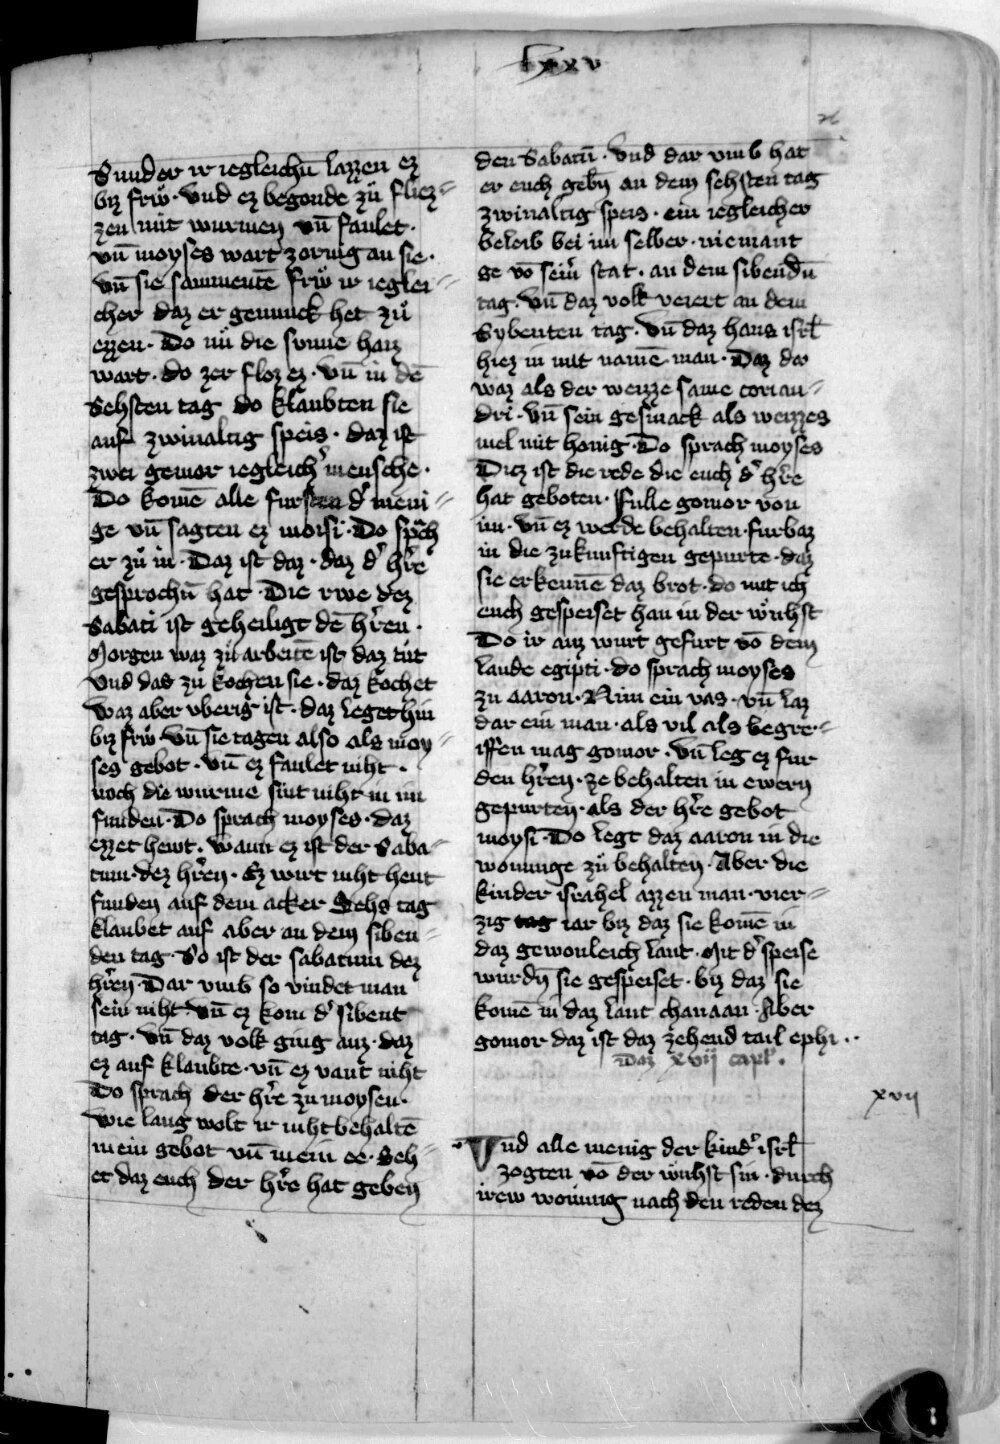 lxxv
Sunder ir iegleichū lazzen ez
biz frwͦ · Vnd ez begonde zuͦ fliez=
zen mit wurmen vn̄ faulet ·
vn̄ moyses wart zornig an sie ·
vn̄ sie sammentē frwͦ ir ieglei=
cher daz er genunck het zuͦ
ezzen · Do nuͦ die sunne haiz
wart · do zer floz ez · vn̄ in dē
Sehsten tag do klaubten sie
auf zwinaltig speis · daz ist
zwei gemor iegleichˀ mensche ·
Do komē alle fursten dˀ meni=
ge vn̄ sagten ez moisi · Do spͣch
er zuͦ in · Daz ist daz · daz dˀ hˀre
gesprochū hat · Die rwe dez
Sabati ist geheiligt dē hˀren ·
Morgen waz zuͦ arbeitē ist daz tuͦt
vnd daz zu kochen sie · daz kochet
waz aber vberig ist · daz leget hin
biz frwͦ · vn̄ sie tagen also als moy=
ses gebot · vn̄ ez faulet niht ·
noch die wurme sint niht in im
funden · Do sprach moyses · daz
ezzet hewt · wann ez ist der Saba=
tum · dez hˀren · Ez wirt niht heut
funden auf dem acker Sehs tag
klaubet auf aber an dem siben=
den tag · So ist der sabatum dez
hˀren · Dar vmb so vindet man
sein niht · vn̄ ez kom dˀ sibent
tag · vn̄ daz volk ging auz · daz
ez auf klaubte · vn̄ ez vant niht
Do sprach der hˀre zu moysen ·
wie lang wolt ir niht behaltē
mein gebot vn̄ mein ee · Seh=
et daz euch der hˀre hat geben
den Sabatū · Vnd dar vmb hat
er euch gebn̄ an dem sehsten tag
zwinaltig speis · ein iegleicher
beleib bei im selber · niemant
ge vō seinˀ stat · an dem sibendū
tag · vn̄ daz volk veiert an dem
Sybenten tag · Vn̄ daz haus isrl̄
hiez in mit namē man · Daz do
waz als der weizze same corian=
dri · vn̄ sein gesmack als weizzes
mel mit honig · Do sprach moyses
Diez ist die rede die euch dˀ hˀre
hat geboten · Fulle gomor von
im · vn̄ ez werde behalten · furbaz
in die zukunftigen gepurte · daz
sie erkennē daz brot · do mit ich
euch gespeiset han in der wuͦhst
Do ir auz wurt gefurt vō dem
lande egipti · do sprach moyses
zu aaron · Nim ein vas · vn̄ laz
dar ein man · als vil als begre=
iffen mag gomor · vn̄ leg ez fur
den hˀren · ze behalten in ewern
gepurten · als der hˀre gebot
moysi · Do legt daz aaron in die
wonunge zuͦ behalten · Aber die
kinder israhel azzen man · vier=
zig tag iar biz daz sie komē in
daz gewonleich lant · Mit dˀ speise
wurdn̄ sie gespeiset · biz daz sie
komē in daz lant chanaan · Aber
gomor daz ist daz zehend tail ephi ··
Daz xvij capl̓ ·
xvij
Vnd alle menig der kindˀ isrl̄
zogten vō der wuͦhst sin · durch
irew wonung nach den reden dez